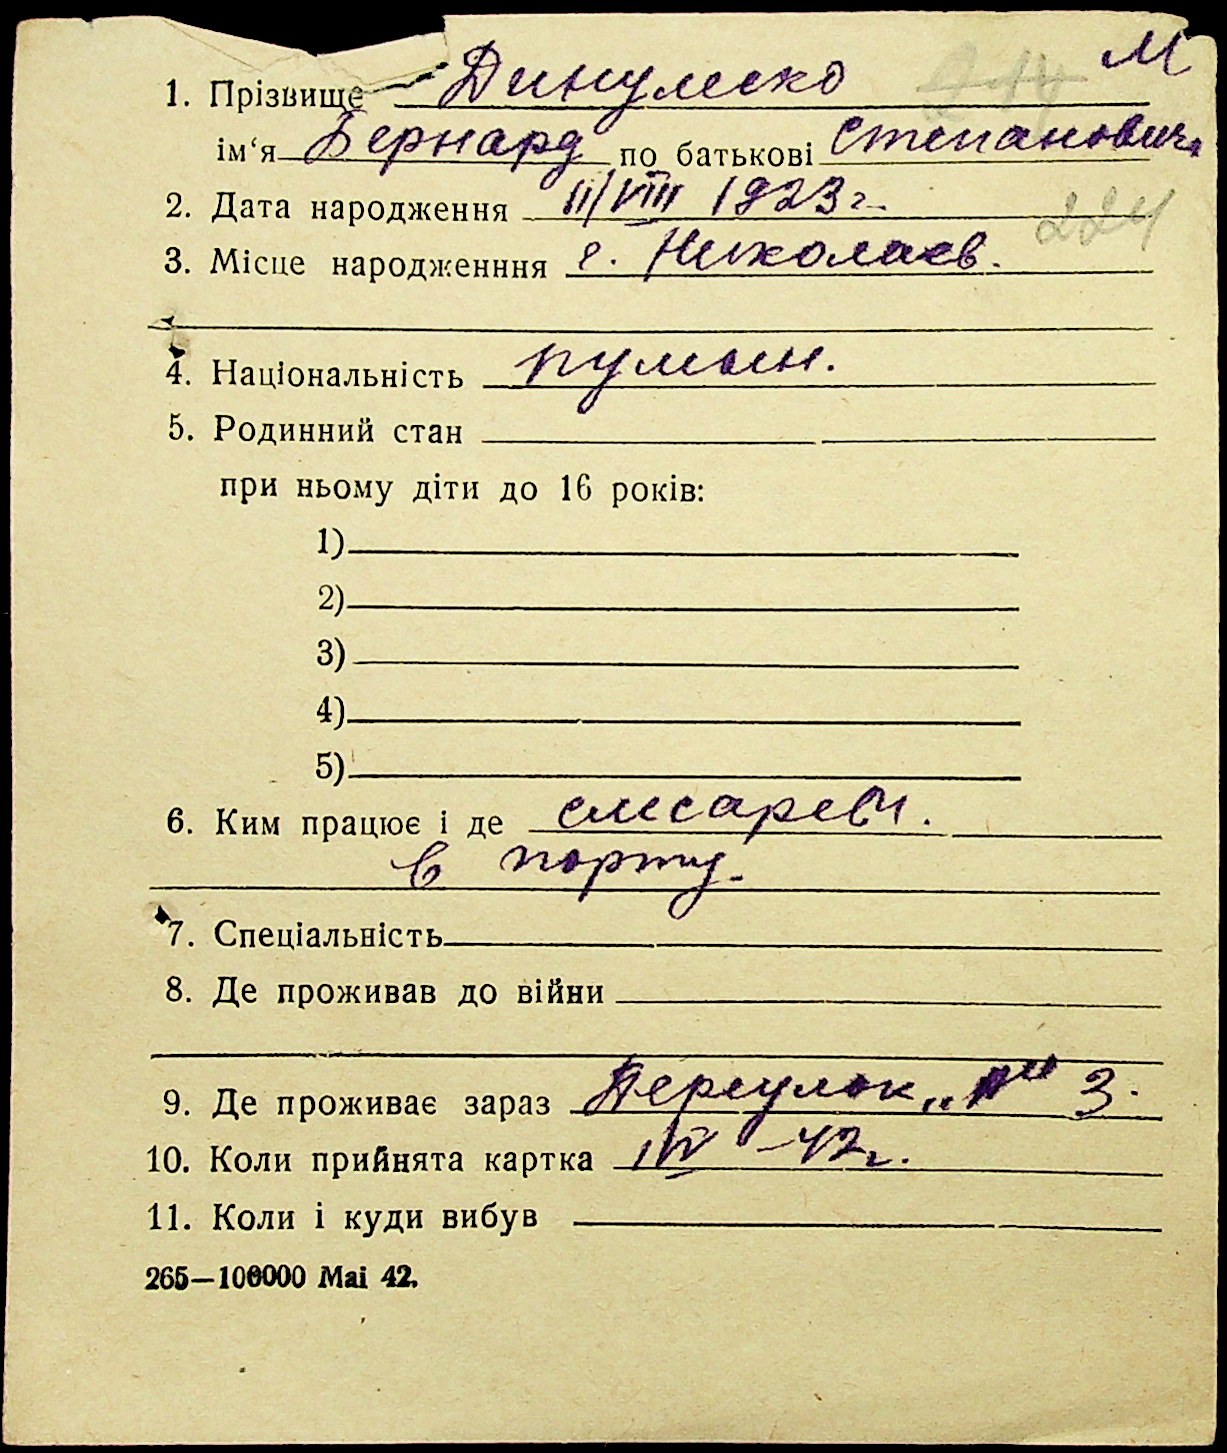 М
1. Прізвище Динулеско 214
ім‘я Бернард по батькові Степанович
2. Дата народження 11/VIII 1923 г.
224
3. Місце народженння г. Николаев.
4. Національність румын.
5. Родинний стан
при ньому діти до 16 років:
1)
2)
3)
4)
5)
6. Ким працює і де слесарем.
в порту.
7. Спеціальність
8. Де проживав до війни
9. Де проживає зараз Переулок 3.
10. Коли прийнята картка -42 г.
11. Коли і куди вибув
265—100000 Mai 42.